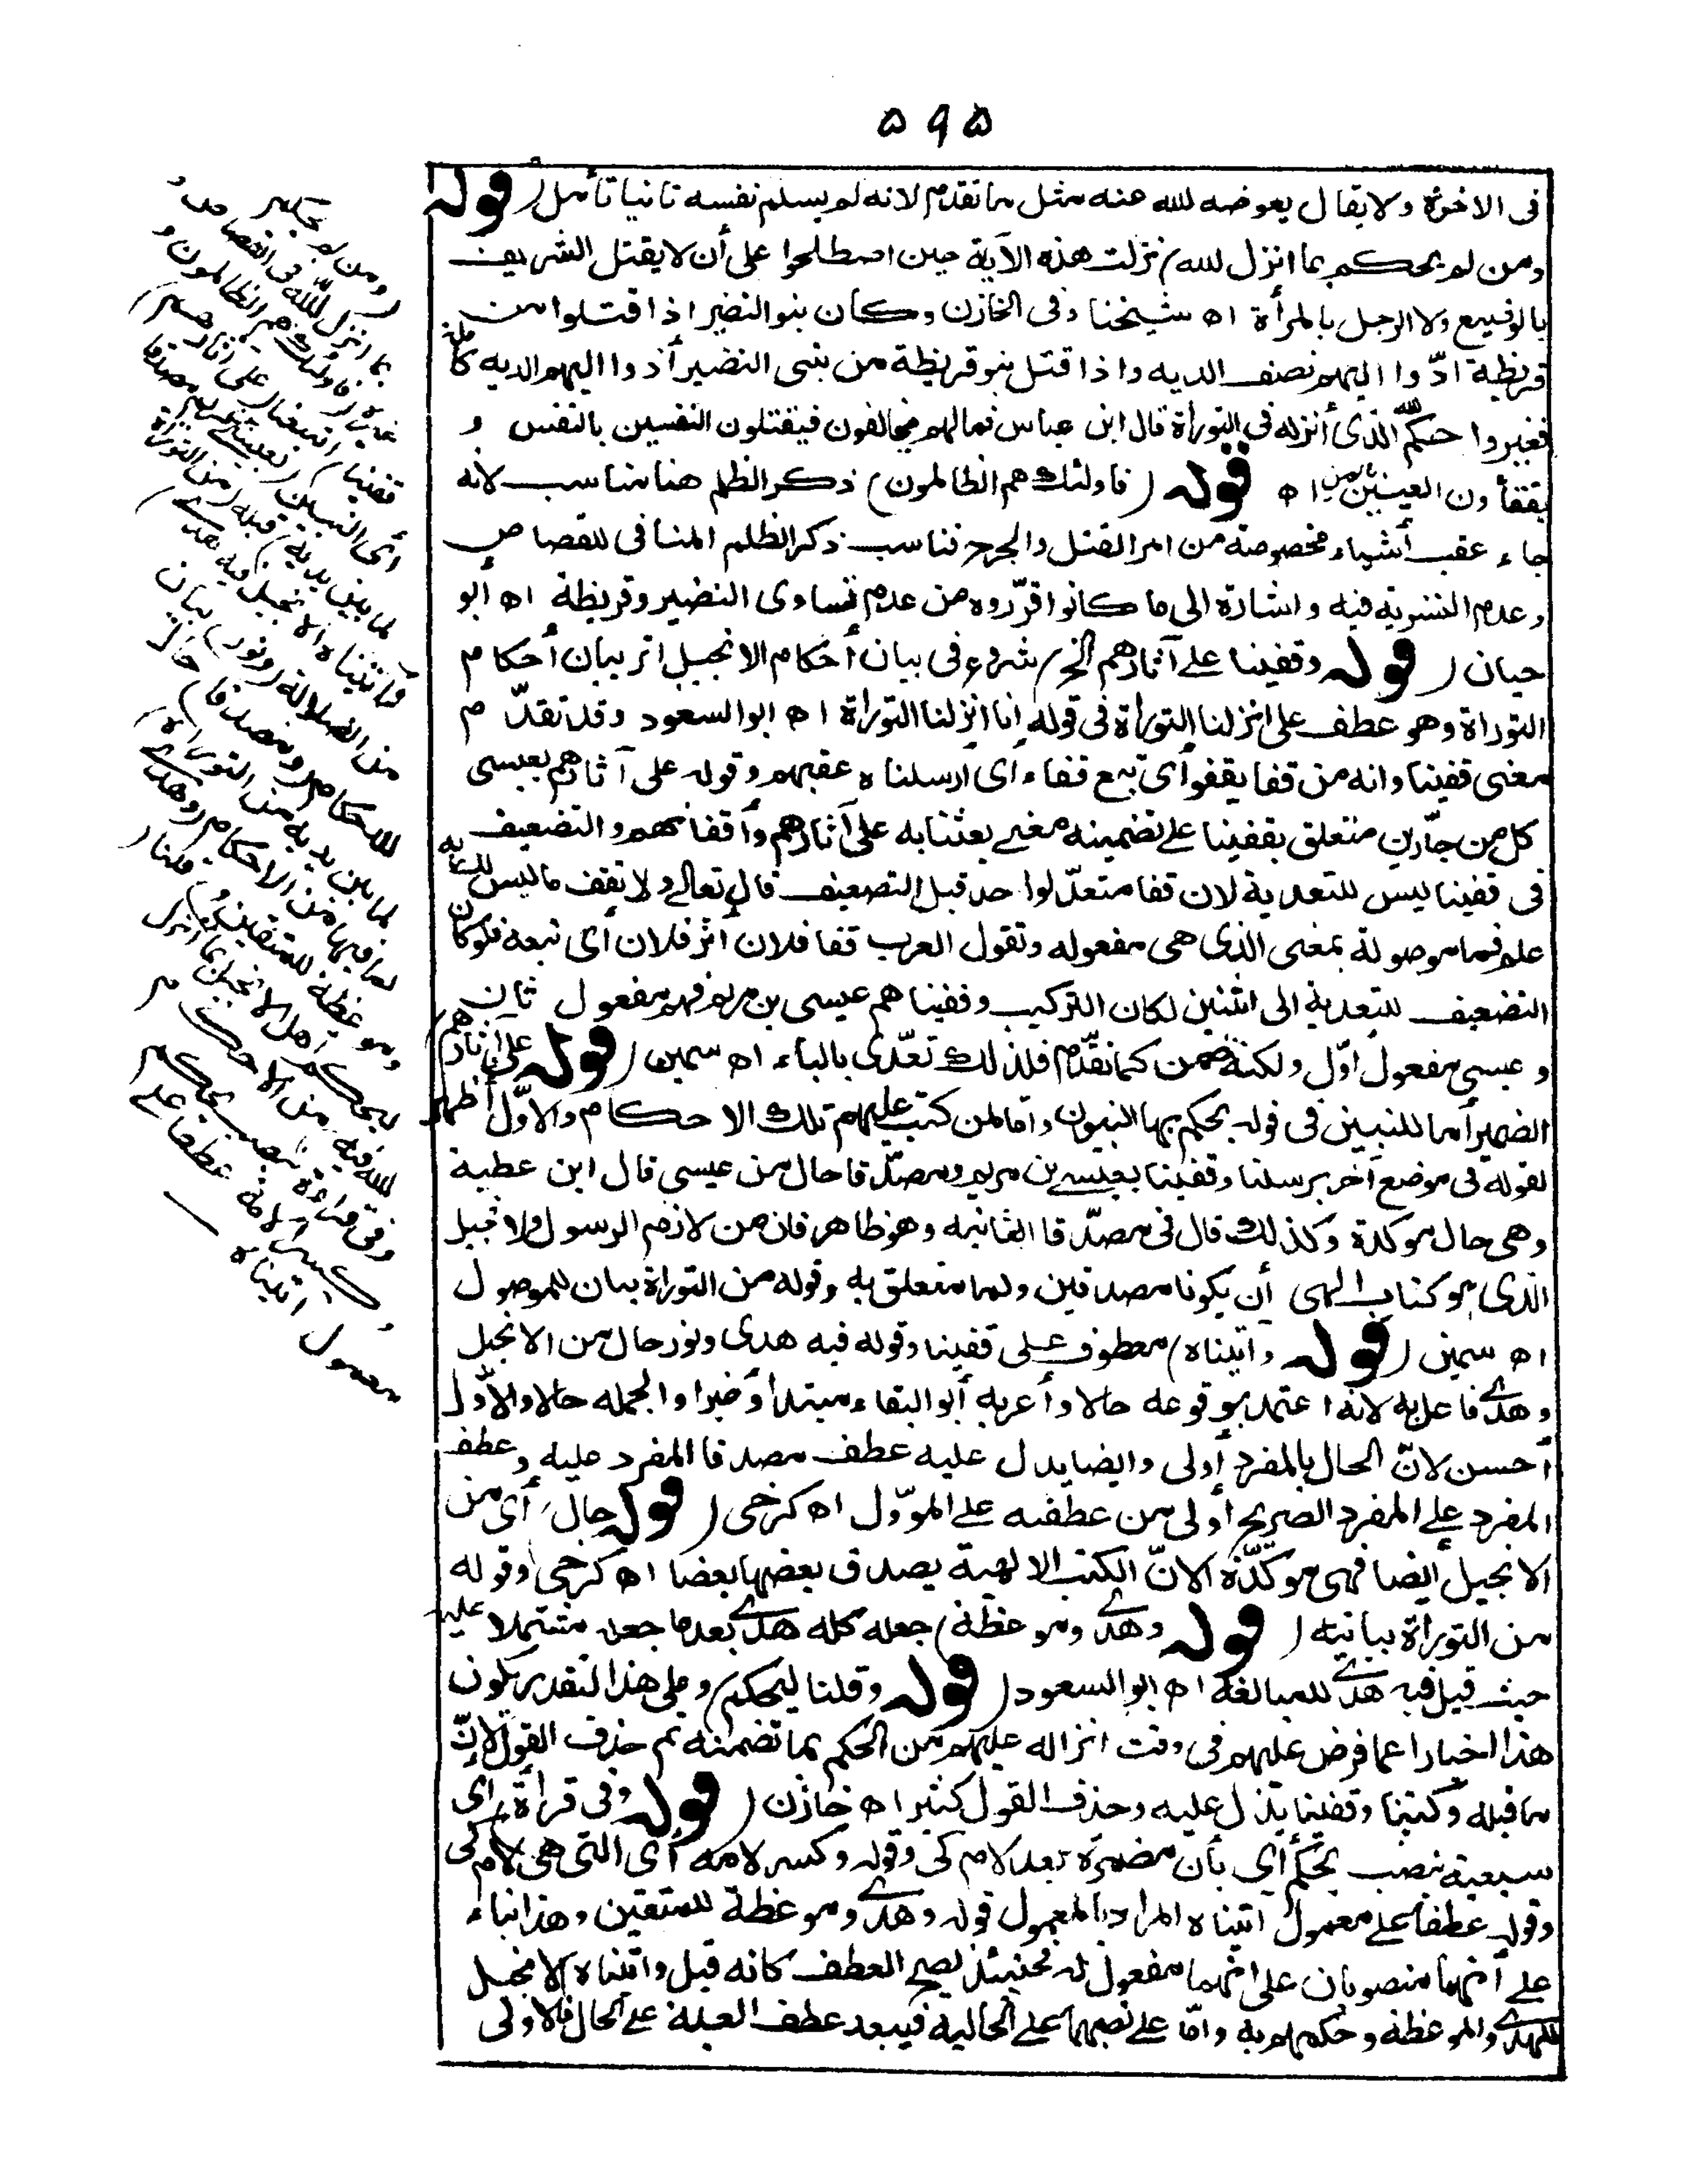 ٥٩٥
فى الاخرة ولا يقال يعوضه الله عنه مثل ما تقدم لانه لم يسلم نفسه ثانيا تأمل (قوله
ومن لم يحكم بما انزل الله) نزلت هذه الآية حين اصطلحوا على أن لا يقتل الشريف
بالوضيع ولا الرجل بالمرأة اه شيخنا وفى الخازن وكان بنو النضير اذا قتلوا من
قريظة ادّوا اليهم نصف الديه واذا قتل بنو قريظة من بنى النضير أدوا اليهم الديه كاملة
فغيروا حكم الله الذى أنزله فى التوراة قال ابن عباس فما لهم يخالفون فيقتلون النفسين بالنفس و
يفقأون العينين بالعين اه قوله (فاولئك هم الظالمون) ذكر الظلم هنا مناسب لانه
جاء عقب أشياء مخصوصة من امر القتل والجرح فناسب ذكر الظلم المنافى للقصاص
وعدم التسوية فيه واشارة الى ما كانوا قرّروه من عدم تساوى النضير وقريظة اه ابو
حيان (قوله وقفينا على آثارهم الخ) شروع فى بيان أحكام الانجيل اثر بيان أحكام
التوراة وهو عطف على انزلنا التوراة فى قوله انا انزلنا التوراة اه ابو السعود وقد تقدّم
معنى قفينا وانه من قفا يقفو أى تبع قفاه أى ارسلناه عقبهم وقوله على آثارهم بعيسى
كل من جارين متعلق بقفينا على تضمينه معنى بعثنا به على آثارهم وأقفائهم والتضعيف
فى قفينا ليس للتعدية لان قفا متعدّ لواحد قبل التضعيف قال تعالى ولا تقف ما ليس لك به
علم فما موصولة بمعنى الذى هى مفعوله وتقول العرب قفا فلان اثر فلان أى تبعه فلو كان
التضعيف للتعدية الى اثنين لكان التركيب وقفيناهم عيسى بن مريم فهم مفعول ثان
وعيسى مفعول اوّل ولكنه ضمن كما تقدّم فلذلك تعدّى بالباء اه سمين (قوله على اثارهم)
الضمير أما للنبيين فى قوله يحكم بها النبيون واما لمن كتب عليهم تلك الاحكام والاوّل أظهر
لقوله فى موضع آخر برسلنا وقفينا بعيسى بن مريم ومصدّقا حال من عيسى قال ابن عطية
وهى حال موكدة وكذلك قال فى مصدّقا الثانيه وهو ظاهر فان من لازم الرسول والانجيل
الذى هو كتاب الهى أن يكونا مصدقين ولما متعلق به وقوله من التوراة بيان للموصول
اه سمين (قوله واتيناه) معطوف على قفينا وقوله فيه هدى ونور حال من الانجيل
وهدى فاعل به لانه اعتمد بوقوعه حالا وأعربه أبو البقاء مبتدأ وخبرا والجمله حالا والاوّل
أحسن لانّ الحال بالمفرد أولى وايضا يدل عليه عطف مصدقا المفرد عليه وعطف
المفرد على المفرد الصريح أولى من عطفه على الموّول اه كرخى (قوله حال) أى من
الانجيل أيضا فهى موكدّة لانّ الكتب الالهية يصدق بعضها بعضا اه كرخى وقوله
من التوراة بيانيه (قوله وهدى وموعظة) جعله كله هدى بعد ما جعل مشتملا عليه
حيث قيل فيه هدى للمبالغه اه ابو السعود (قوله وقلنا ليحكم) وعلى هذا التقدير يكون
هذا اخبارا عما فرض عليهم فى وقت انزاله عليهم من الحكم بما تضمنه ثم حذف القول لانّ
ما قبله وكتبنا وقفينا يدل عليه وحذف القول كثير اه خازن (قوله وفى قراءة) أى
سبعية بنصب يحكم أى بأن مضمرة بعد لام كى وقوله وكسر لامه أى التى هى لام كى
وقوله عطفا على معمول اتيناه المراد بالمعمول قوله وهدى وموعظة للمتقين وهذا بناء
على أنهما منصوبان على انهما مفعول له فحينئذ يصح العطف كانه قيل واتيناه الانجيل
للهدى والموعظة وحكمهم به وامّا على نصبهما على الحالية فيبعد عطف العلة على الحال فالاولى
(ومن لم يحكم
بما انزل الله فى القصاص و
غيره (فاولئك هم الظالمون و
قفينا) اتبعنا (على اثارهم)
أى النبيين (بعيسى بن مريم مصدقا
لما بين يديه) قبله (من التوراة
واتيناه الانجيل فيه هدى)
من الضلالة (ونور) بيان
للاحكام (ومصدقا) حال
لما بين يديه من التوراة)
لما فيها من الاحكام (وهدى
وموعظة للمتقين و) قلنا (
ليحكم اهل الانجيل بما انزل
الله فيه) من الاحكام
وفى قراءة بنصب يحكم
وكسر لامه عطفا على
معمول اتيناه